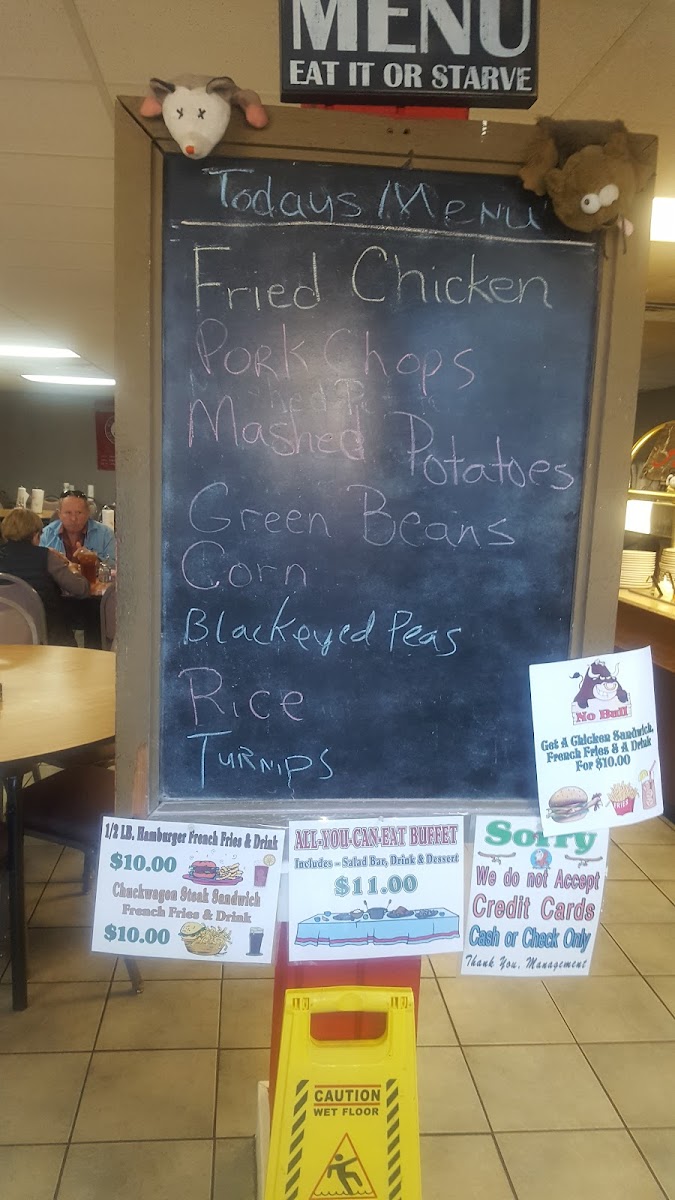 MENU
EAT IT OR STARVE
Todays Menu
Fried Chicken
Pork Chops
Mashed Potatoes
Green Beans
Corn
Blackeyed Peas
Rice
Turnips
No Bull
Get A Chicken Sandwich,
French Fries & A Drink
For $10.00
1/2 LB. Hamburger French Fries & Drink
$10.00
Chuckwagon Steak Sandwich
French Fries & Drink
$10.00
ALL-YOU-CAN-EAT BUFFET
Includes - Salad Bar, Drink & Dessert
$11.00
Sorry
We do not Accept
Credit Cards
Cash or Check Only
Thank You, Management
CAUTION
WET FLOOR